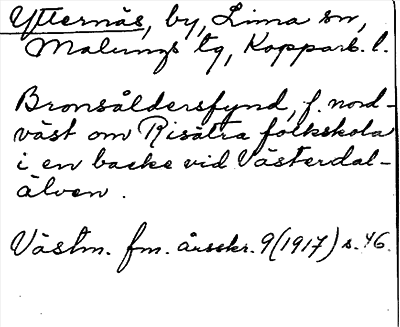 Ytternäs, by, Lima sn,
Malungs tg, Kopparb. l.
Bronsåldersfynd, f. nord-
väst om Risätra folkskola
i en backe vid Västerdal-
älven.
Västm. fm. årsskr. 9 (1917) s. 46.